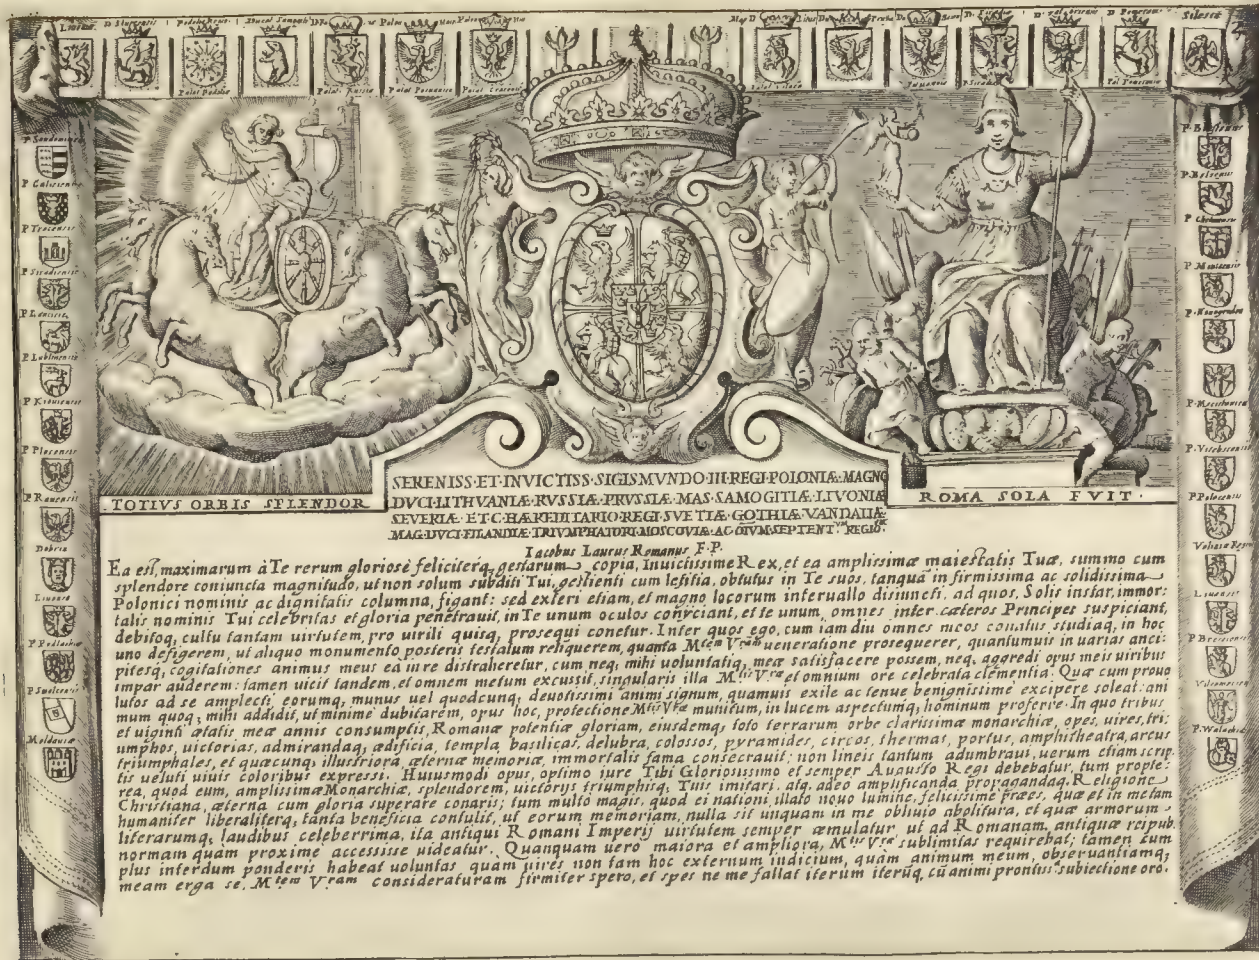 Palat Podoliæ
TOTIVS ORBIS SPLENDOR
ROMA SOLA FVIT.
SERENISS·ET·INVICTISS·SIGISMVNDO·III·REGI·POLONIÆ·MAGNO
DVCI·LITHVANIÆ·RVSSIÆ·PRVSSIÆ·MAS·SAMOGITIÆ·LIVONIÆ
SEVERIÆ·ET·C·HÆREDITARIO·REGI·SVETIÆ·GOTHIÆ·VANDALIÆ
MAG·DVCI·FILANDIÆ·TRIVMPHATORI·MOSCOVIÆ·AC·OĪVM·SEPTENT. REGIO.
Iacobus Laurus Romanus F.P.
Ea est, maximarum à Te rerum gloriosè feliciterq; gestarum copia, Inuictissime Rex, et ea amplissimæ maiestatis Tuæ, summo cum
splendore coniuncta magnitudo, ut non solum subditi Tui, gestienti cum letitia, obtutus in Te suos, tanquã in firmissima ac solidissima
Polonici nominis ac dignitatis columna, figant: sed exteri etiam, et magno locorum interuallo disiuncti, ad quos, Solis instar, immor:
talis nominis Tui celebritas et gloria penetrauit, in Te unum oculos conijciant, et te unum, omnes inter cæteros Principes suspiciant,
debitoq; cultu tantam uirtutem, pro uirili quisq; prosequi conetur. Inter quos ego, cum iam diu omnes meos conatus studiaq; in hoc
uno defigerem, ut aliquo monumento posteris testatum relinquerem, quanta Mtem Vram ueneratione prosequerer, quantumuis in uarias anci:
pitesq; cogitationes animus meus ea in re distraheretur, cum neq; mihi uoluntatiq; meæ satisfacere possem, neq; aggredi opus meis uiribus
impar auderem: tamen uicit tandem, et omnem metum excussit, singularis illa Mtis Vræ et omnium ore celebrata clementia: Quæ cum prouo
lutos ad se amplecti, eorumq; munus uel quodcunq; deuotissimi animi signum, quamuis exile ac tenue benignissimè excipere soleat: ani
mum quoq; mihi addidit, ut minime dubitarem, opus hoc, protectione Mtis Vræ munitum, in lucem aspectumq; hominum proferre. In quo tribus
et uiginti ætatis meæ annis consumptis, Romanæ potentiæ gloriam, eiusdemq; toto terrarum orbe clarissimæ monarchiæ, opes, uires, tri:
umphos, uictorias, admirandaq; ædificia, templa, basilicas, delubra, colossos, pyramides, circos, thermas, portus, amphitheatra, arcus
triumphales, et quæcunq; illustriora, æternæ memoriæ, immortalis fama consecrauit; non lineis tantum adumbraui, uerum etiam scrip
tis ueluti uiuis coloribus expressi. Huiusmodi opus, optimo iure Tibi Gloriosissimo et semper Augusto Regi debebatur; tum propte:
rea, quod eum, amplissimæ Monarchiæ, splendorem, uictorijs triumphisq; Tuis imitari, atq; adeo amplificanda propagandaq; Religione
Christiana, æterna cum gloria superare conaris; tum multò magis, quod ei nationi illato nouo lumine, felicissimè præes, quæ et in me tam
humaniter liberaliterq; tanta beneficia contulit, ut eorum memoriam, nulla sit unquam in me obliuio abolitura, et quæ armorum
literarumq; laudibus celeberrima, ita antiqui Romani Imperij uirtutem semper æmulatur, ut ad Romanam, antiquæ reipub.
normam quam proximè accessisse uideatur. Quanquam uero maiora et ampliora, Mtis Vræ sublimitas requirebat; tamen cum
plus interdum ponderis habeat uoluntas quam uires non tam hoc externum indicium, quàm animum meum, obseruantiamq;
meam erga se, Mtem Vram consideraturam firmiter spero, et spes ne me fallat iterum iterũq, cũ animi prontiss: subiectione oro.
P Sandomirien
P Calisiensis
P Siradiensis
P Lublinensis
P Kiouiensis
P Plocensis
P Rauensis
Dobrin
P Podlachiæ
Moldauiæ
P Belsensis
P Vitebscensis
P Polocensis